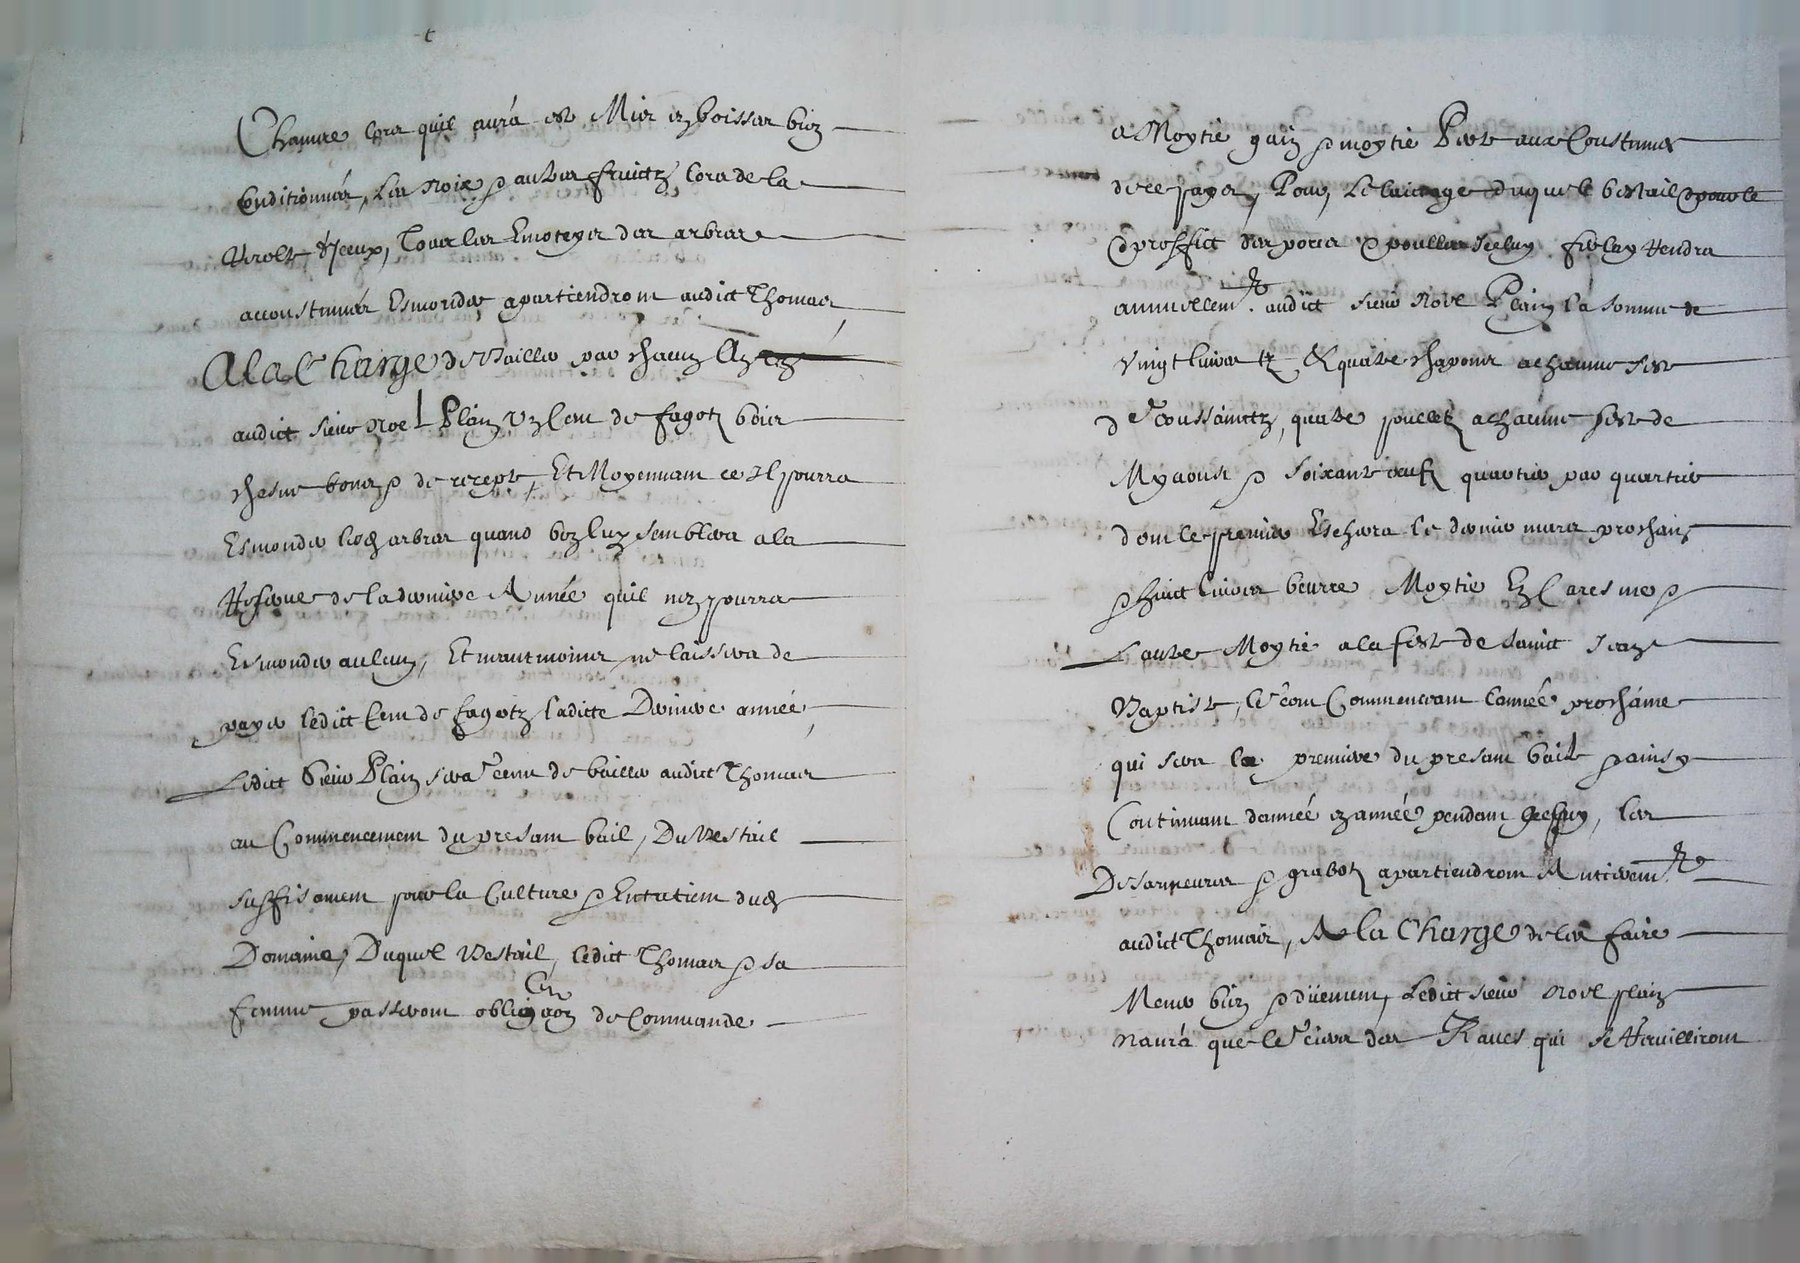 Chanvre lors quil aura este Mis en boisseaux bien
Conditionnés, Les noix & autres fruictz lors de la
Recolte d'Iceux, Tous les Emoteyes des arbres
accoustumés Esmonder apartiendront audict Thomas
A la Charge de Bailler par chacun An
audict sieur Noel Plain Un Cent de fagotz bois
chesne bons & de recepte, Et Moyennant ce Il pourra
Esmonder lesd arbres quand bon luy semblera a la
Reserve de la derniere Année quil nen pourra
Esmonder aulcun, Et neantmoins ne laissera de
payer ledict Cent de fagotz ladicte Derniere année,
Ledict Sieur Plain sera tenu de bailler audict Thomas
au Commencement du presant bail, Du Bestail
suffisament pour la Culture & Entretient dud
Domaine, Duquel Bestail, ledict Thomas & sa
femme passeront obligaon de Commande
a Moytié gain & moytié Perte aux Coustumes
de ce pays, Pour Le laictage duquel bestail
& proffict des porcs & poulles Iceluy fiel Rendra
annuellemt. audict sieur Noel Plain la somme de
Vingt livres tz & quatre chapons a chacune feste
de Toussainctz, quatre pouletz a chacune feste de
My aoust & soixante oeufz quartier par quartier
dont le premier Eschera le dernier mars prochain
& huict livres beurre Moytié En Caresme &
L'autre Moytié a la feste de sainct Jean
Baptiste, le tout Commencant l'année prochaine
qui sera la premiere du presant bail & ainsy
Continuant d'année en année pendant Icelluy, les
& grabotz apartiendront Entieremt
audict Thomas, A la Charge de les faire
Mener bien & düement, Ledict sieur Noel plain
n'aura que le Tiers des Raves qui se Recuilliront